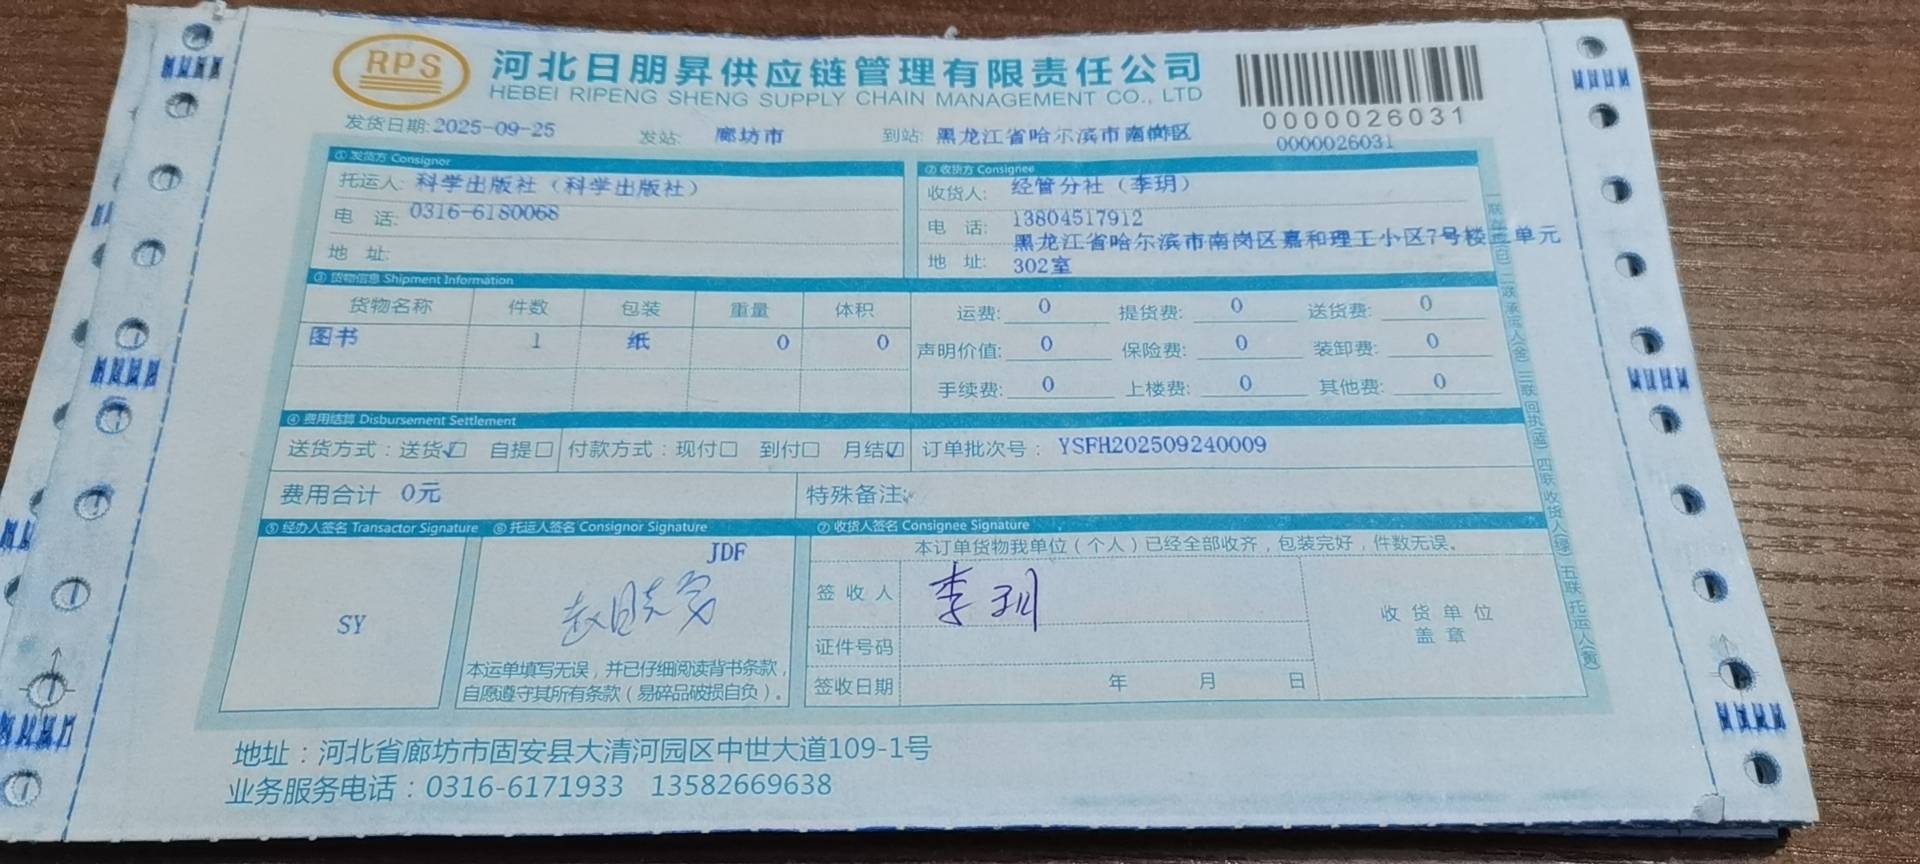 RPS
河北日朋昇供应链管理有限责任公司
HEBEI RIPENG SHENG SUPPLY CHAIN MANAGEMENT CO., LTD
0000026031
发货日期:2025-09-25 发站: 廊坊市 到站: 黑龙江省哈尔滨市南岗区 0000026031
① 发货方 Consignor ② 收货方 Consignee
托运人: 科学出版社（科学出版社） 收货人: 经管分社（李玥）
电 话: 0316-6180068 电 话: 13804517912
地 址: 地 址: 黑龙江省哈尔滨市南岗区嘉和理工小区7号楼 单元
302室
③ 货物信息 Shipment Information
货物名称 件数 包装 重量 体积 运费: 0 提货费: 0 送货费: 0
图书 1 纸 0 0 声明价值: 0 保险费: 0 装卸费: 0
手续费: 0 上楼费: 0 其他费: 0
④ 费用结算 Disbursement Settlement
送货方式：送货☑ 自提☐ 付款方式：现付☐ 到付☐ 月结☑ 订单批次号： YSFH202509240009
费用合计 0元 特殊备注:
⑤ 经办人签名 Transactor Signature ⑥ 托运人签名 Consignor Signature ⑦ 收货人签名 Consignee Signature
JDF 本订单货物我单位（个人）已经全部收齐，包装完好，件数无误。
SY 签 收 人 李玥 收 货 单 位
盖 章
证件号码
本运单填写无误，并已仔细阅读背书条款，
自愿遵守其所有条款（易碎品破损自负）。 签收日期 年 月 日
二联 承运人(金) 三联 回执(蓝) 四联 收货人(绿) 五联 托运人(黄)
地址：河北省廊坊市固安县大清河园区中世大道109-1号
业务服务电话：0316-6171933 13582669638